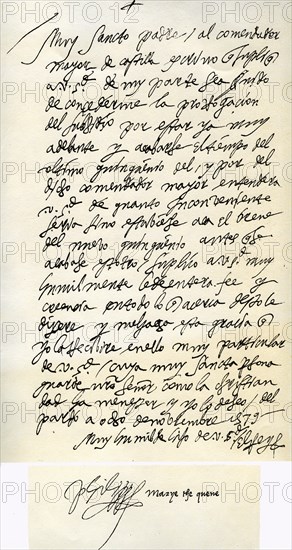 Muy Sancto padre / al comendador
mayor de castilla escrivo supliq
a v. sd. de my parte sea servido
de concederme la prorogacion
del subsidio por estar ya muy
adelante y acabarse el tiempo del
ultimo quinquenio del / y por del
dicho comendador mayor entendera
v. sd. de quanto inconveniente
seria sino estuviese
del nuevo quinquenio antes q se
acabase estotro, suplico a v. sd. muy
humilmente le de entera fee y
creencia en todo lo q acerca desto le
dixere y me haga esta gracia q
yo la recibire en ello muy particular
de v. sd. / cuya muy Sancta persona
guarde nro Señor como la christian
dad ha menester y yo lo deseo, del
pardo a ocho de noviembre 1573
Muy humilde hijo de v. Sd.
el Rey
Philippus
Marye the quene